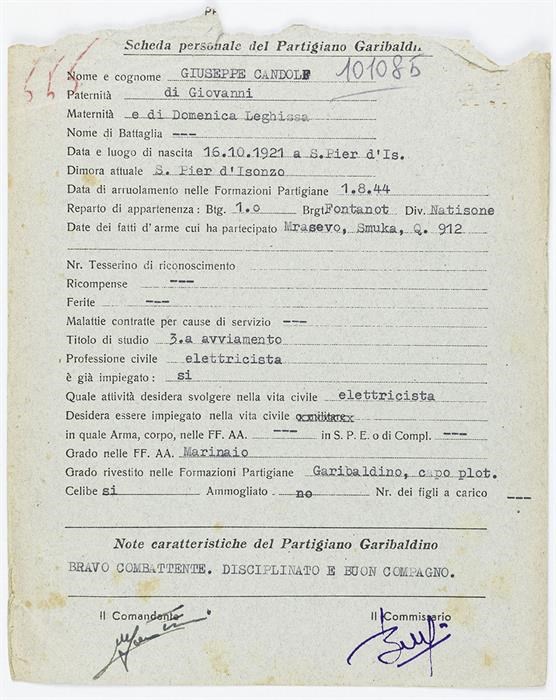 Scheda personale del Partigiano Garibaldi
Nome e cognome GIUSEPPE CANDOLF 101085
555
Paternità di Giovanni
Maternità e di Domenica Leghissa
Nome di Battaglia ---
Data e luogo di nascita 16.10.1921 a S.Pier d'Is.
Dimora attuale S. Pier d'Isonzo
Data di arruolamento nelle Formazioni Partigiane 1.8.44
Reparto di appartenenza: Btg. 1.o Brgt Fontanot Div. Natisone
Date dei fatti d'arme cui ha partecipato Mrasevo, Smuka, Q. 912
Nr. Tesserino di riconoscimento
Ricompense ---
Ferite ---
Malattie contratte per cause di servizio ---
Titolo di studio 3.a avviamento
Professione civile elettricista
è già impiegato: si
Quale attività desidera svolgere nella vita civile elettricista
Desidera essere impiegato nella vita civile o militare
in quale Arma, corpo, nelle FF. AA. --- in S. P. E. o di Compl. ---
Grado nelle FF. AA. Marinaio
Grado rivestito nelle Formazioni Partigiane Garibaldino, capo plot.
Celibe si Ammogliato no Nr. dei figli a carico ---
Note caratteristiche del Partigiano Garibaldino
BRAVO COMBATTENTE. DISCIPLINATO E BUON COMPAGNO.
Il Comandante Il Commissario